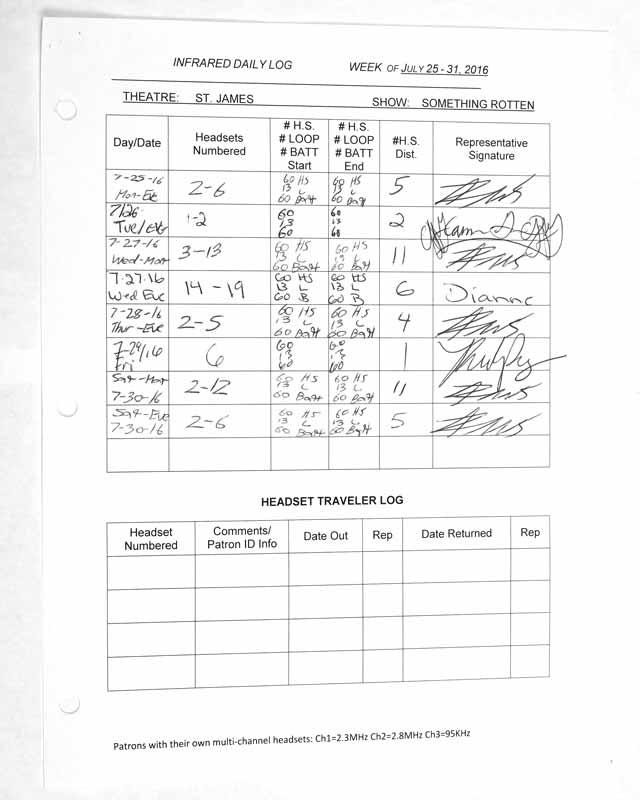 INFRARED DAILY LOG WEEK OF JULY 25 - 31, 2016
THEATRE: ST. JAMES SHOW: SOMETHING ROTTEN
Day/Date
Headsets Numbered
# H.S. # LOOP # BATT Start
# H.S. # LOOP # BATT End
#H.S. Dist.
Representative Signature
7-25-16 Mon-Eve
2-6
60 HS 13 L 60 Batt
60 HS 13 L 60 Batt
5
7/26 Tue/Eve
1-2
60 13 60
60 13 60
2
7-27-16 Wed-Mat
3-13
60 HS 13 L 60 Batt
60 HS 13 L 60 Batt
11
7.27.16 Wed Eve
14-19
60 HS 13 L 60 B
60 HS 13 L 60 B
6
Dianne
7-28-16 Thur-Eve
2-5
60 HS 13 L 60 Batt
60 HS 13 L 60 Batt
4
7/29/16 Fri
6
60 13 60
60 13 60
1
Sat-Mat 7-30-16
2-12
60 HS 13 L 60 Batt
60 HS 13 L 60 Batt
11
Sat-Eve 7-30-16
2-6
60 HS 13 L 60 Batt
60 HS 13 L 60 Batt
5
HEADSET TRAVELER LOG
Headset Numbered
Comments/ Patron ID Info
Date Out
Rep
Date Returned
Rep
Patrons with their own multi-channel headsets: Ch1=2.3MHz Ch2=2.8MHz Ch3=95KHz